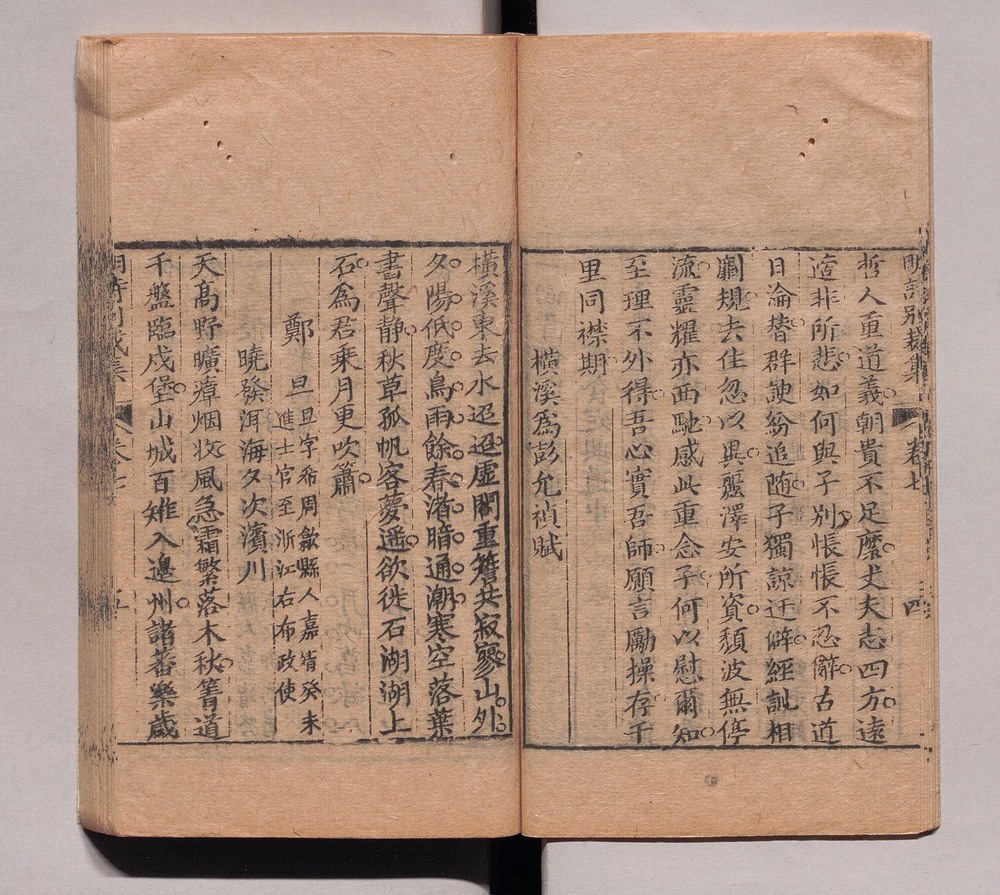 明詩別裁集 卷七 四
哲人重道義朝貴不足縻丈夫志四方遠
適非所悲如何與子別悵悵不忍辭古道
日淪替群詖紛追隨子獨諒迂僻經訓相
劘規去住忽以異麗澤安所資頹波無停
流靈耀亦西馳感此重念子何以慰爾知
至理不外得吾心實吾師願言勵操存千
里同襟期
橫溪為彭允禎賦
橫溪東去水迢迢虛閣重簷共寂寥山外
夕陽低度鳥雨餘春渚暗通潮寒空落葉
書聲靜秋草孤帆客夢遙欲徙石湖湖上
石為君乘月更吹簫
鄭旦 旦字希周歙縣人嘉靖癸未
進士官至浙江右布政使
曉發洱海夕次濱川
天高野曠瘴烟收風急霜繁落木秋箐道
千盤臨戍堡山城百雉入邊州諸蕃樂歲